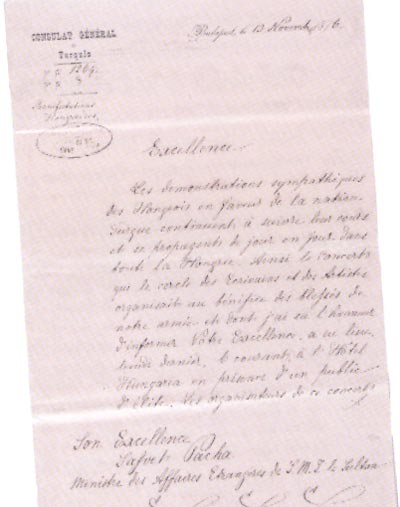 CONSULAT GÉNÉRAL
de
Turquie
Nº Gl 1269
Nº Sl 8
Manifestations
Hongroises.
Budapest, le 13 Novemb. 1876.
Excellence.
Les demonstrations sympathiques
des Hongrois en faveur de la nation
Turque continuent à suivre leur cours
et se propagent de jour en jour dans
toute la Hongrie. Ainsi le concert
que le cercle des Ecrivains et des Artistes
organisait au bénéfice des blessés de
notre armée et dont j'ai eu l'honneur
d'informer Votre Excellence, a eu lieu
lundi dernier, courant, à l'Hôtel
Hungaria en présence d'un public
d'élite. Les organisateurs de ce concert
Son Excellence
Safvet Pacha
Ministre des Affaires Etrangères de S.M.I. le Sultan